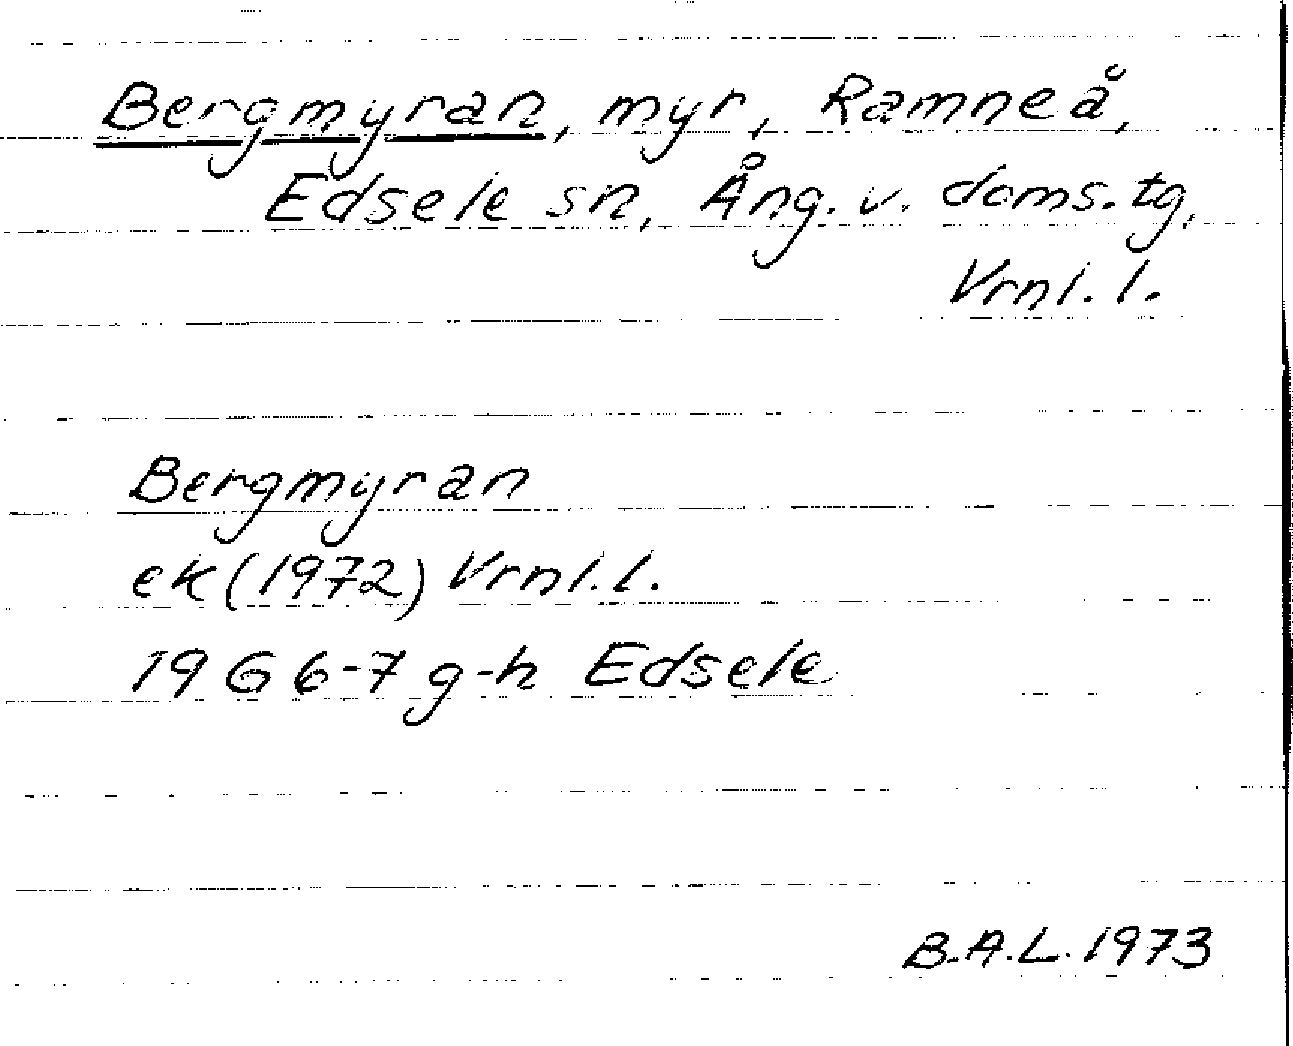 Bergmyran, myr, Ramneå,
Edsele sn, Ång. v. doms. tg,
Vrnl. l.
Bergmyran
ek (1972) Vrnl. l.
19 G 6-7 g-h Edsele
B.A.L. 1973